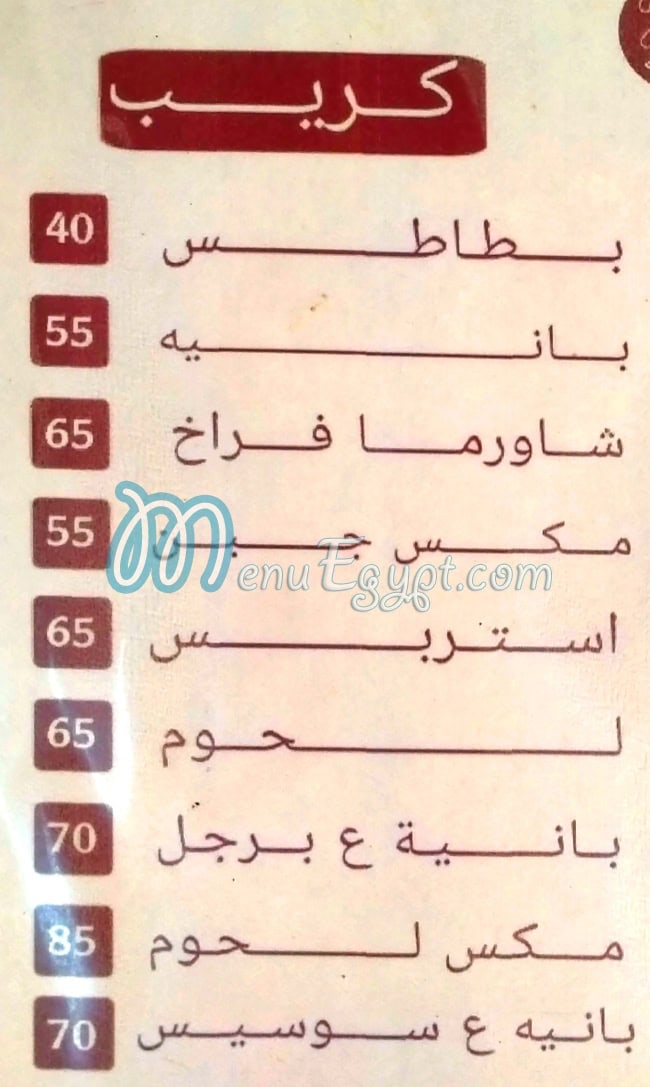 كريب
بطاطس 40
بانيه 55
شاورما فراخ 65
مكس جبن 55
MenuEgypt.com
استربس 65
لحوم 65
بانية ع برجل 70
مكس لحوم 85
بانيه ع سوسيس 70